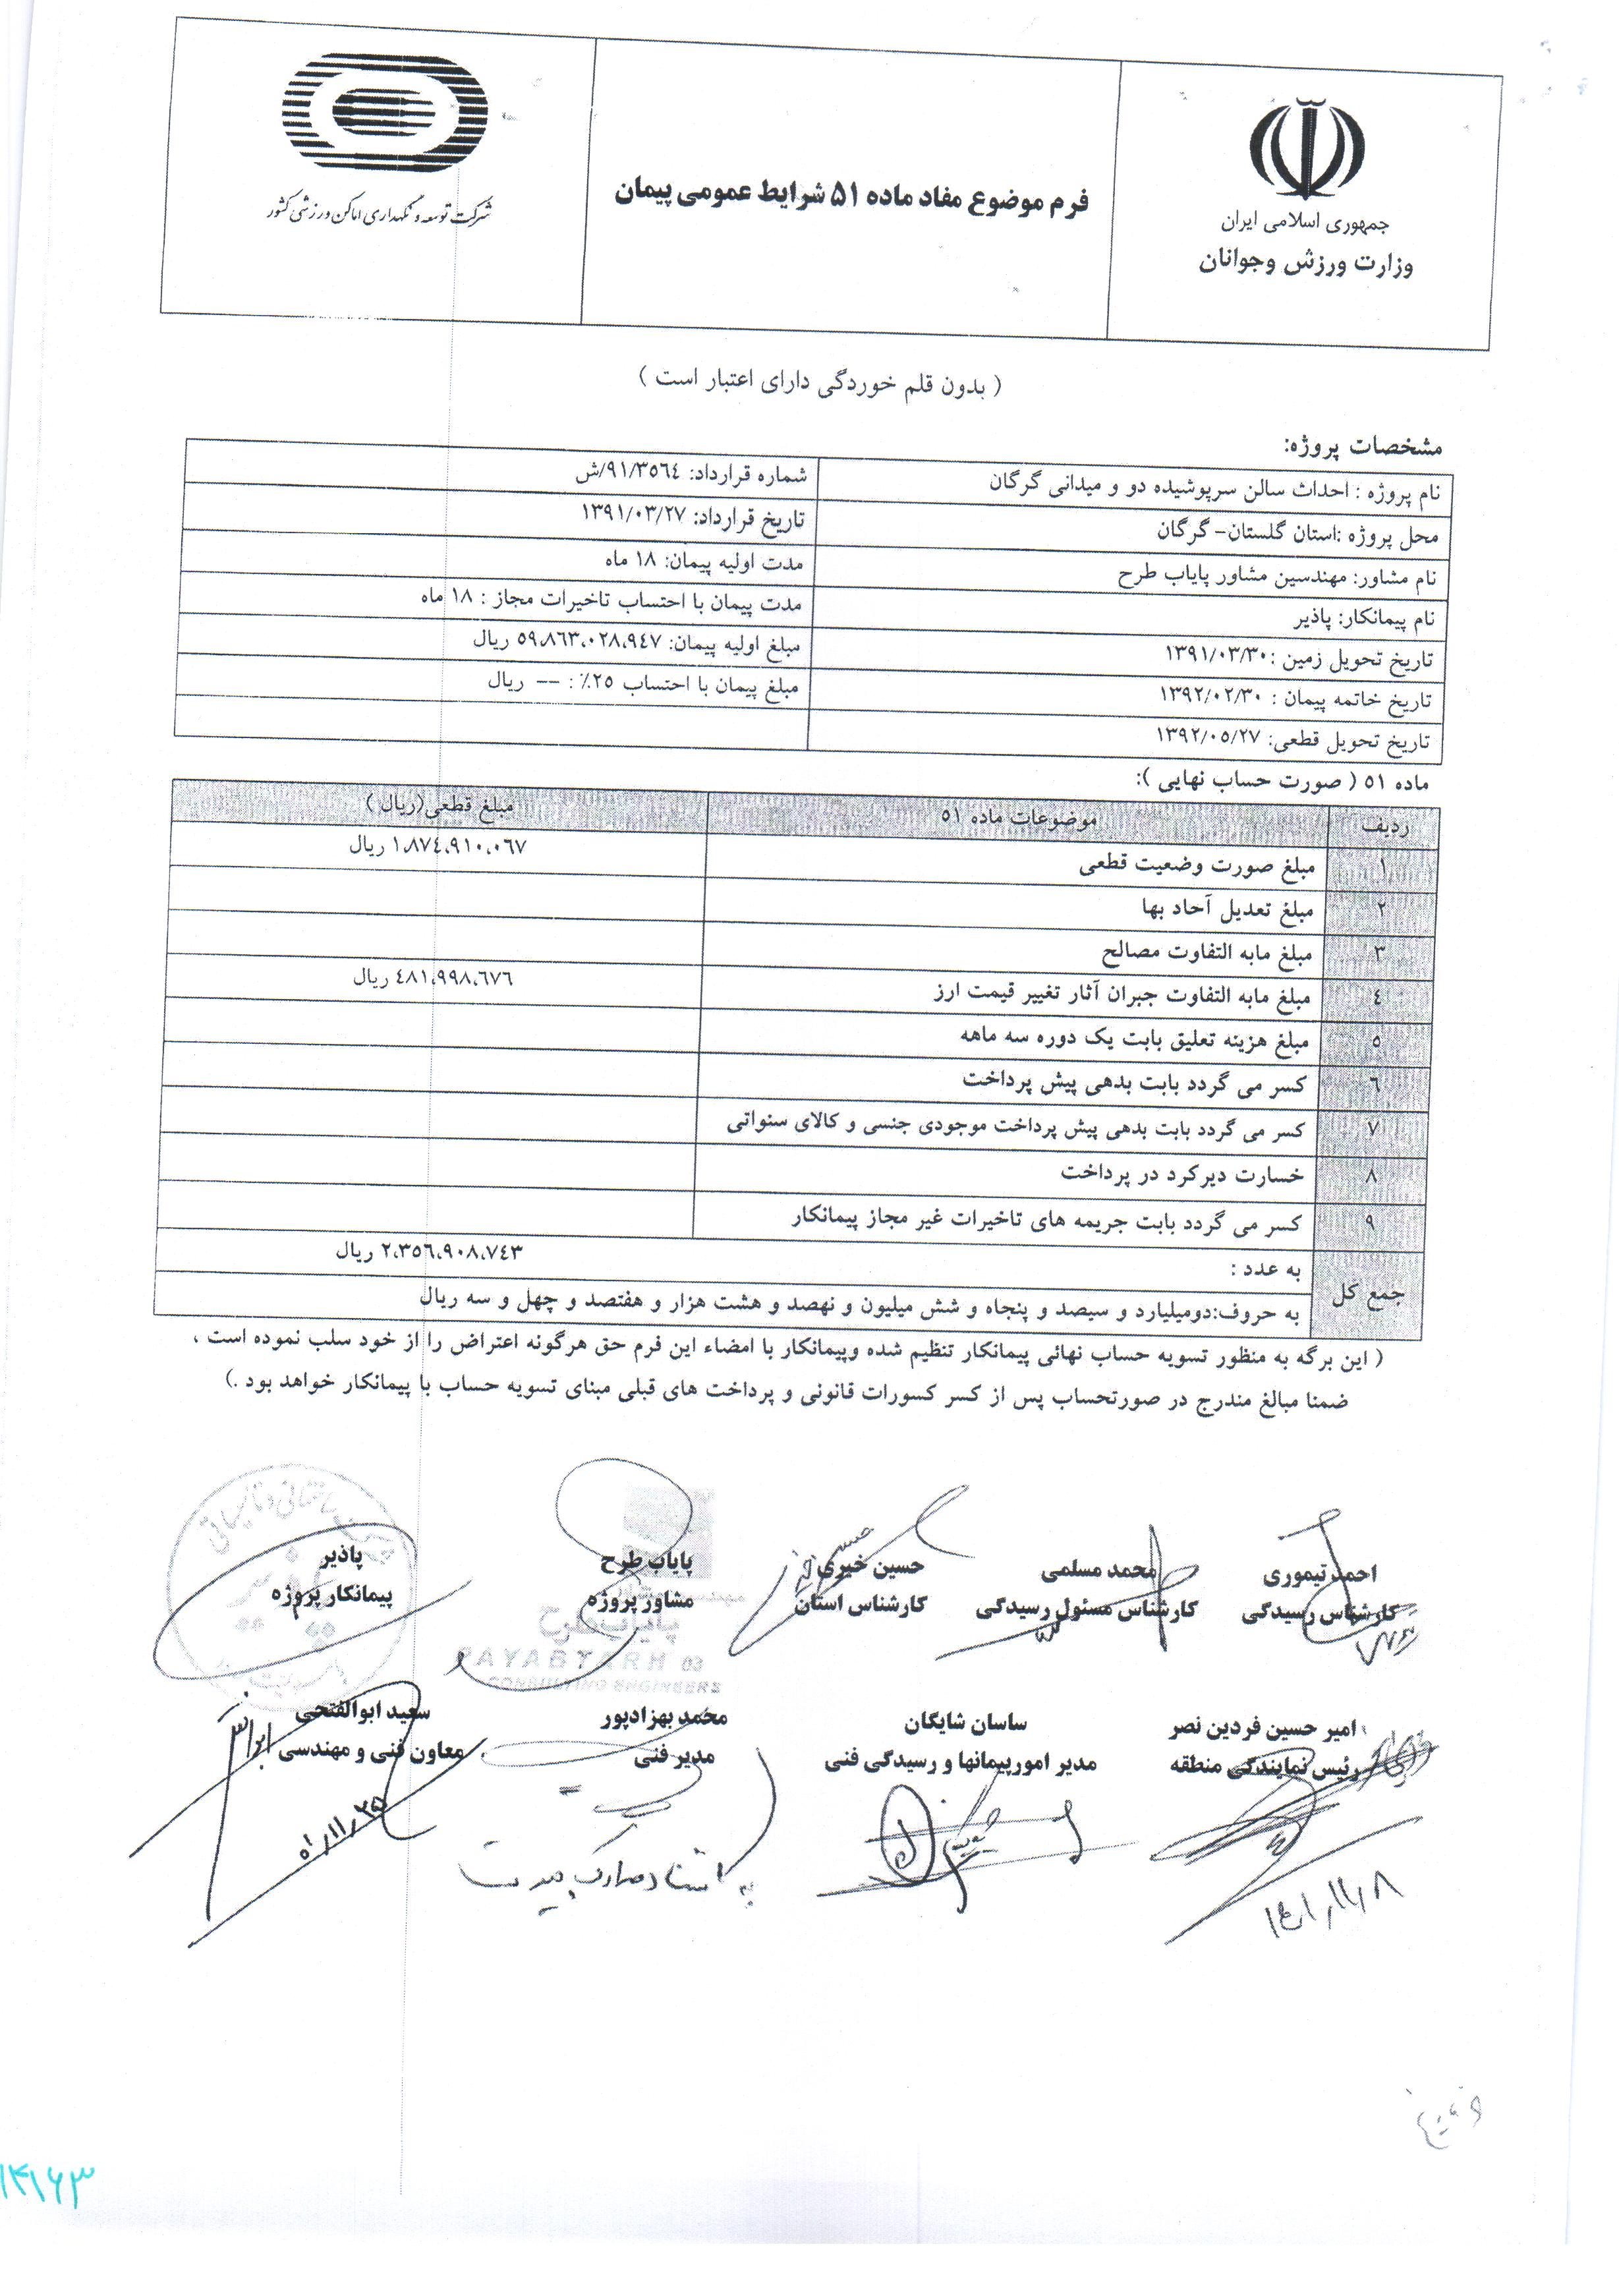 جمهوری اسلامی ایران
وزارت ورزش وجوانان
فرم موضوع مفاد ماده ۵۱ شرایط عمومی پیمان
شرکت توسعه و نگهداری اماکن ورزشی کشور
( بدون قلم خوردگی دارای اعتبار است )
مشخصات پروژه:
نام پروژه : احداث سالن سرپوشیده دو و میدانی گرگان
شماره قرارداد: ۹۱/۳۵٦٤/ش
محل پروژه :استان گلستان- گرگان
تاریخ قرارداد: ۱۳۹۱/۰۳/۲۷
نام مشاور: مهندسین مشاور پایاب طرح
مدت اولیه پیمان: ۱۸ ماه
نام پیمانکار: پاذیر
مدت پیمان با احتساب تاخیرات مجاز : ۱۸ ماه
تاریخ تحویل زمین :۱۳۹۱/۰۳/۳۰
مبلغ اولیه پیمان: ۵۹،۸٦۳،۰۲۸،۹٤۷ ریال
تاریخ خاتمه پیمان : ۱۳۹۲/۰۲/۳۰
مبلغ پیمان با احتساب ۲۵٪ : -- ریال
تاریخ تحویل قطعی: ۱۳۹۲/۰۵/۲۷
ماده ۵۱ ( صورت حساب نهایی ):
ردیف موضوعات ماده ۵۱ مبلغ قطعی(ریال )
۱ مبلغ صورت وضعیت قطعی ۱،۸۷٤،۹۱۰،۰٦۷ ریال
۲ مبلغ تعدیل آحاد بها
۳ مبلغ مابه التفاوت مصالح
٤ مبلغ مابه التفاوت جبران آثار تغییر قیمت ارز ٤۸۱،۹۹۸،٦۷٦ ریال
۵ مبلغ هزینه تعلیق بابت یک دوره سه ماهه
٦ کسر می گردد بابت بدهی پیش پرداخت
۷ کسر می گردد بابت بدهی پیش پرداخت موجودی جنسی و کالای سنواتی
۸ خسارت دیرکرد در پرداخت
۹ کسر می گردد بابت جریمه های تاخیرات غیر مجاز پیمانکار
جمع کل
به عدد : ۲،۳۵٦،۹۰۸،۷٤۳ ریال
به حروف:دومیلیارد و سیصد و پنجاه و شش میلیون و نهصد و هشت هزار و هفتصد و چهل و سه ریال
( این برگه به منظور تسویه حساب نهائی پیمانکار تنظیم شده وپیمانکار با امضاء این فرم حق هرگونه اعتراض را از خود سلب نموده است ،
ضمنا مبالغ مندرج در صورتحساب پس از کسر کسورات قانونی و پرداخت های قبلی مبنای تسویه حساب با پیمانکار خواهد بود .)
احمد تیموری
کارشناس رسیدگی
محمد مسلمی
کارشناس مسئول رسیدگی
حسین خیری
کارشناس استان
پایاب طرح
مشاور پروژه
پاذیر
پیمانکار پروژه
پایاب طرح
PAYABTARH co
CONSULTING ENGINEERS
امیر حسین فردین نصر
رئیس نمایندگی منطقه
ساسان شایگان
مدیر امورپیمانها و رسیدگی فنی
محمد بهزادپور
مدیر فنی
سعید ابوالفتحی
معاون فنی و مهندسی
۰۱/۱۱/۲۵
به استناد مدارک پیوست
۱٤۰۱/۱۱/۰۸